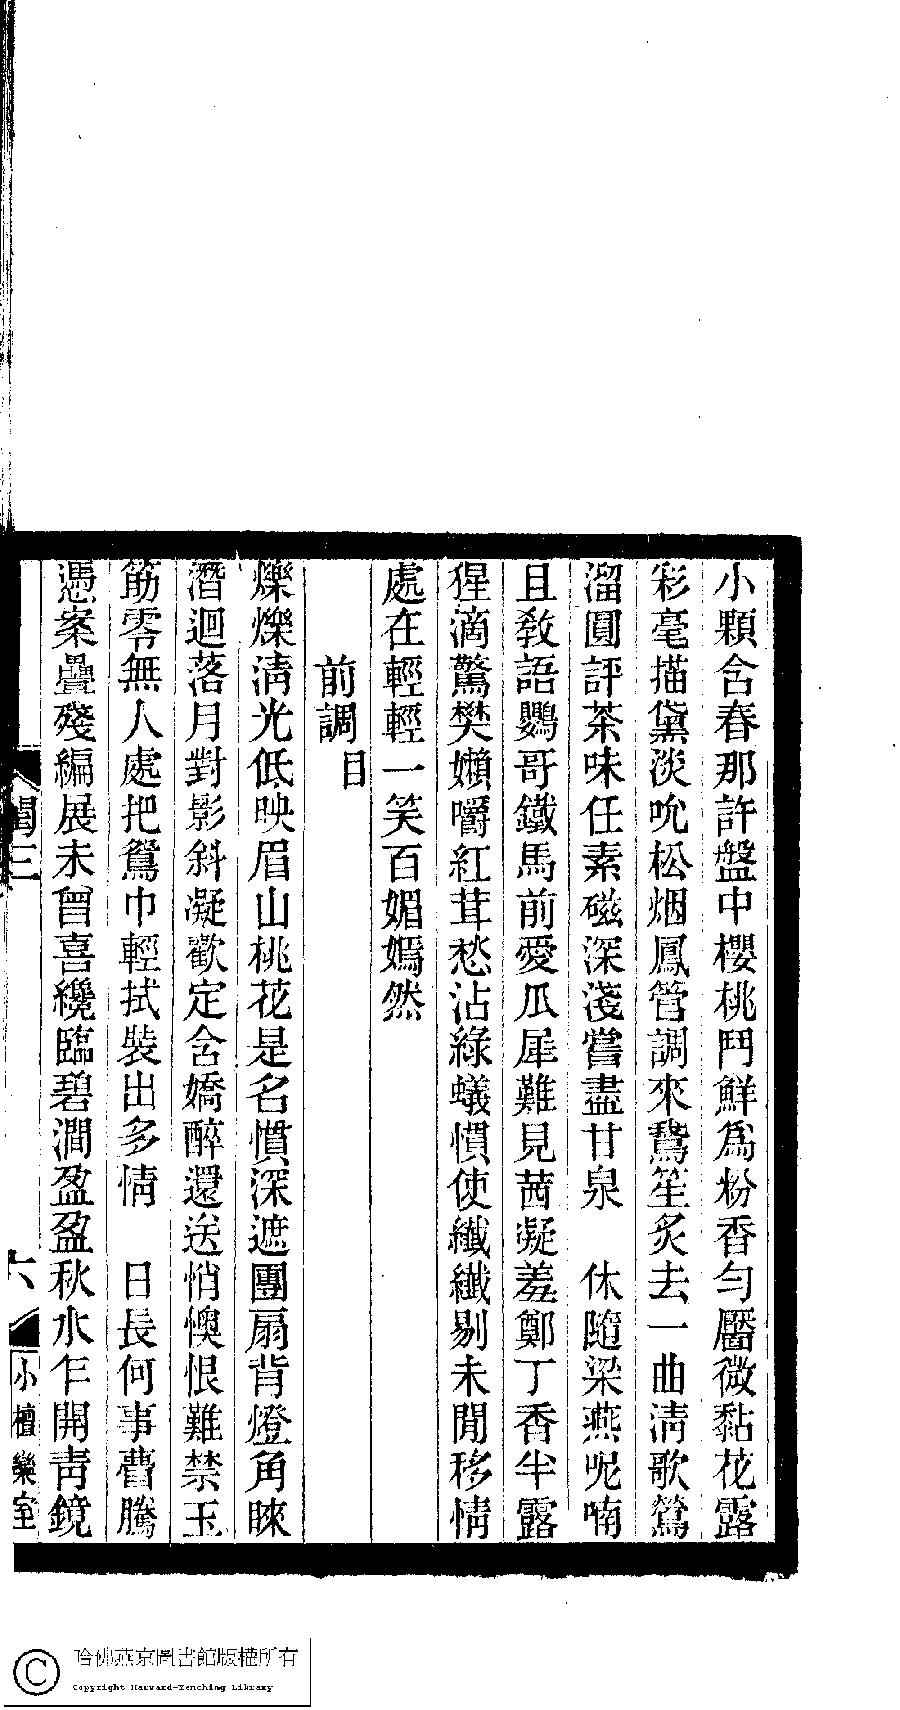 小顆含春那許盤中櫻桃鬥鮮為粉香勻靨微黏花露
彩毫描黛淡吮松烟鳳管調來鵞笙炙去一曲清歌鶯
溜圓評茶味任素磁深淺嘗盡甘泉　休隨梁燕呢喃
且敎語鸚哥鐵馬前愛瓜犀難見茜凝羞鄭丁香半露
猩滴驚樊嬾嚼紅茸愁沾綠蟻慣使纖纖剔未閒移情
處在輕輕一笑百媚嫣然
前調 目
爍爍淸光低映眉山桃花是名慣深遮團扇背燈角睞
潛迴落月對影斜凝歡定含嬌醉還送悄懊恨難禁玉
筯零無人處把鴛巾輕拭裝出多情　日長何事瞢騰
憑案疊殘編展未曾喜纔臨碧澗盈盈秋水乍開靑鏡
閨三
六
小檀欒室
哈佛燕京圖書館版權所有
Copyright Harvard-Yenching Library